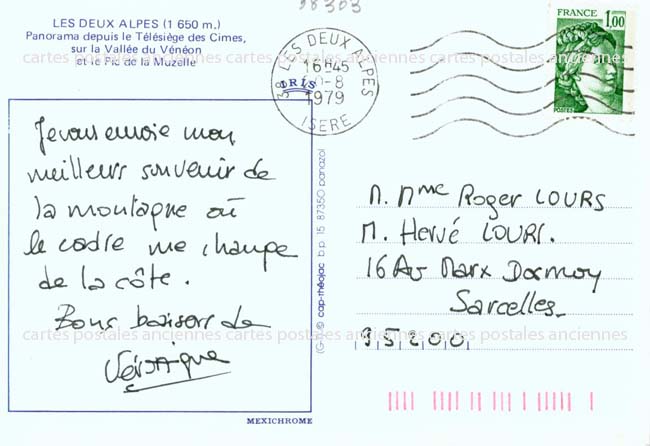 38303
LES DEUX ALPES (1 650 m.)
Panorama depuis le Télésiège des Cimes,
sur la Vallée du Vénéon
et le Pic de la Muzelle
cartes postales anciennes cartes postales anciennes cartes postales anciennes
38 LES DEUX ALPES
16H45
-8
1979
ISERE
FRANCE
1,00
POSTES
Je vous envoie mon
meilleur souvenir de
la montagne où
le cadre me change
de la côte.
Bons baisers de
Véronique
MEXICHROME
(G-F) © cap-théojac b.p. 15 87350 panazol
M. Mme Roger LOURS
M. Hervé LOURS.
16 Av Marx Dormoy
Sarcelles
95200
cartes postales anciennes cartes postales anciennes cartes postales anciennes